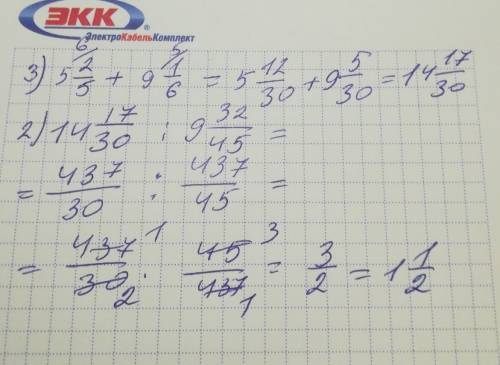 ЭКК
ЭлектроКабельКомплект
3) 5 2/5 (6/) + 9 1/6 (5/) = 5 12/30 + 9 5/30 = 14 17/30
2) 14 17/30 : 9 32/45 =
= 437/30 : 437/45 =
= 437/30 · 45/437 (1 3 2 1) = 3/2 = 1 1/2